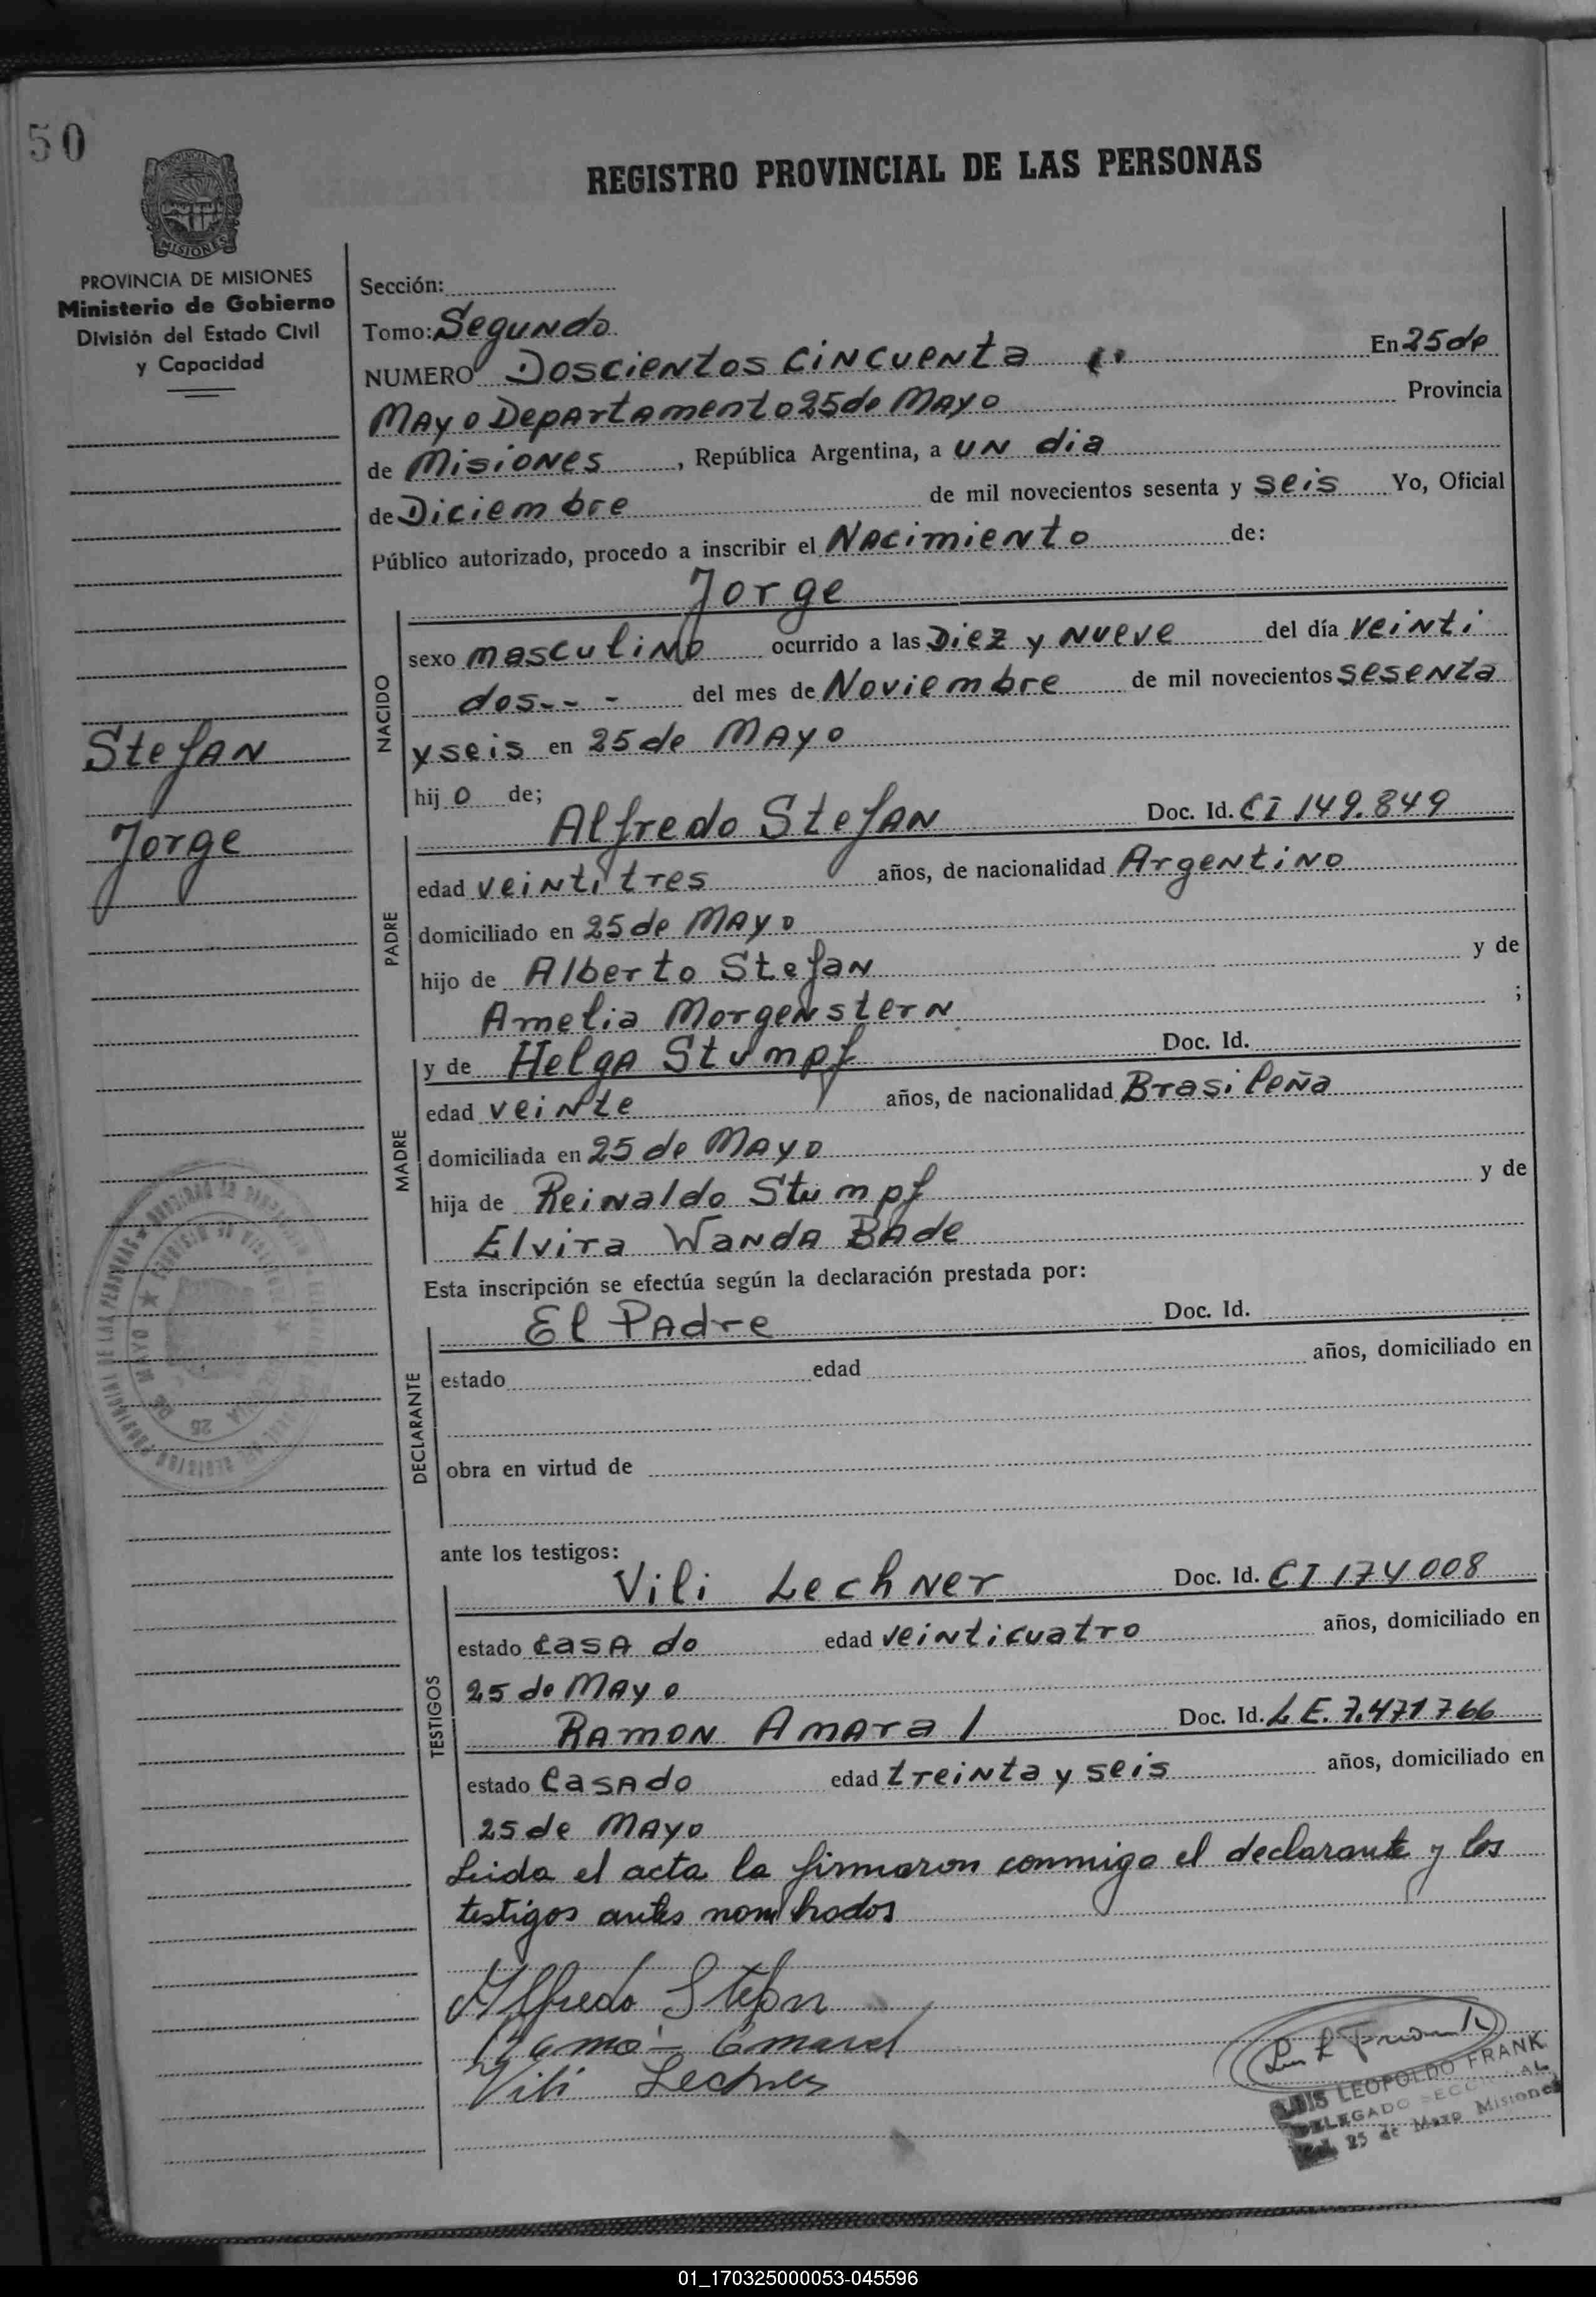 50
REGISTRO PROVINCIAL DE LAS PERSONAS
MISIONES
PROVINCIA DE MISIONES
Ministerio de Gobierno
División del Estado Civil
y Capacidad
Stefan
Jorge
Sección:
Tomo: Segundo
NUMERO Doscientos cincuenta En 25 de
Mayo Departamento 25 de Mayo Provincia
de Misiones, República Argentina, a un dia
de Diciembre de mil novecientos sesenta y seis Yo, Oficial
Público autorizado, procedo a inscribir el Nacimiento de:
Jorge
NACIDO
sexo masculino ocurrido a las Diez y nueve del día veinti
dos--- del mes de Noviembre de mil novecientos sesenta
y seis en 25 de Mayo
hijo de;
Alfredo Stefan Doc. Id. CI 149.849
PADRE
edad veintitres años, de nacionalidad Argentino
domiciliado en 25 de Mayo
hijo de Alberto Stefan y de
Amelia Morgenstern ;
MADRE
y de Helga Stumpf Doc. Id.
edad veinte años, de nacionalidad Brasileña
domiciliada en 25 de Mayo
hija de Reinaldo Stumpf y de
Elvira Wanda Bade
Esta inscripción se efectúa según la declaración prestada por:
El Padre Doc. Id.
DECLARANTE
estado edad años, domiciliado en
obra en virtud de
ante los testigos:
Vili Lechner Doc. Id. CI 174008
TESTIGOS
estado casado edad veinticuatro años, domiciliado en
25 de Mayo
Ramon Amaral Doc. Id. L E. 7.471766
estado casado edad treinta y seis años, domiciliado en
25 de Mayo
Leida el acta la firmaron conmigo el declarante y los
testigos antes nombrados
Alfredo Stefan
Vili Lechner
LUIS LEOPOLDO FRANK
DELEGADO SECCIONAL
25 de Mayo Misiones
01_170325000053-045596